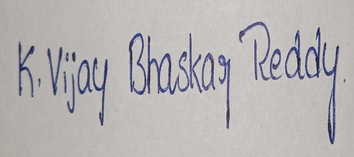 K. Vijay Bhaskar Reddy.